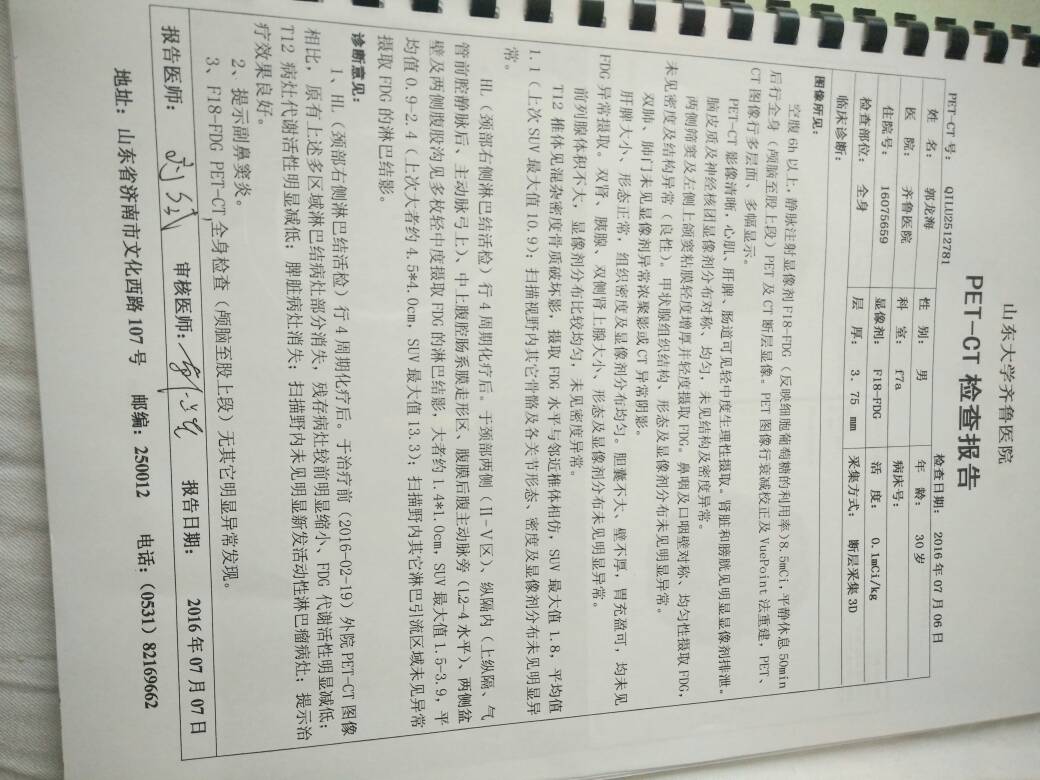 山东大学齐鲁医院
PET-CT 检查报告
PET-CT 号: QILU2512781 检查日期: 2016 年 07 月 06 日
姓 名: 郭龙海 性 别: 男 年 龄: 30 岁
医 院: 齐鲁医院 科 室: f7a 病床号:
住院号: 16075659 显像剂: F18-FDG 活 度: 0.1mCi/kg
检查部位: 全身 层 厚: 3.75 mm 采集方式: 断层采集 3D
临床诊断:
图像所见:
空腹 6h 以上,静脉注射显像剂 F18-FDG(反映细胞葡萄糖的利用率)8.5mCi,平静休息 50min
后行全身(颅脑至股上段)PET 及 CT 断层显像。PET 图像行衰减校正及 VuePoint 法重建,PET、
CT 图像行多层面、多幅显示。
PET-CT 影像清晰,心肌、肝脾、肠道可见轻中度生理性摄取。肾脏和膀胱见明显显像剂排泄。
脑皮质及神经核团显像剂分布对称、均匀,未见结构及密度异常。
两侧筛窦及左侧上颌窦粘膜轻度增厚并轻度摄取 FDG。鼻咽及口咽壁对称、均匀性摄取 FDG,
未见密度及结构异常(良性)。甲状腺组织结构、形态及显像剂分布未见明显异常。
双肺、肺门未见显像剂异常浓聚影或 CT 异常阴影。
肝脾大小、形态正常,组织密度及显像剂分布均匀。胆囊不大、壁不厚,胃充盈可,均未见
FDG 异常摄取。双肾、胰腺、双侧肾上腺大小、形态及显像剂分布未见明显异常。
前列腺体积不大,显像剂分布比较均匀,未见密度异常。
T12 椎体见混杂密度骨质破坏影,摄取 FDG 水平与邻近椎体相仿,SUV 最大值 1.8,平均值
1.1(上次 SUV 最大值 10.9);扫描视野内其它骨骼及各关节形态、密度及显像剂分布未见明显异
常。
HL(颈部右侧淋巴结活检)行 4 周期化疗后。于颈部两侧(II-V 区)、纵隔内(上纵隔、气
管前腔静脉后、主动脉弓上)、中上腹腔肠系膜走形区、腹膜后腹主动脉旁(L2-4 水平)、两侧盆
壁及两侧腹股沟见多枚轻中度摄取 FDG 的淋巴结影,大者约 1.4*1.0cm,SUV 最大值 1.5-3.9,平
均值 0.9-2.4(上次大者约 4.5*4.0cm,SUV 最大值 13.3);扫描野内其它淋巴引流区域未见异常
摄取 FDG 的淋巴结影。
诊断意见:
1、HL(颈部右侧淋巴结活检)行 4 周期化疗后。于治疗前(2016-02-19)外院 PET-CT 图像
相比,原有上述多区域淋巴结病灶部分消失,残存病灶较前明显缩小、FDG 代谢活性明显减低;
T12 病灶代谢活性明显减低;脾脏病灶消失;扫描野内未见明显新发活动性淋巴瘤病灶;提示治
疗效果良好。
2、提示副鼻窦炎。
3、F18-FDG PET-CT 全身检查(颅脑至股上段)无其它明显异常发现。
报告医师: 审核医师: 报告日期: 2016 年 07 月 07 日
地址: 山东省济南市文化西路 107 号 邮编: 250012 电话: (0531) 82169662